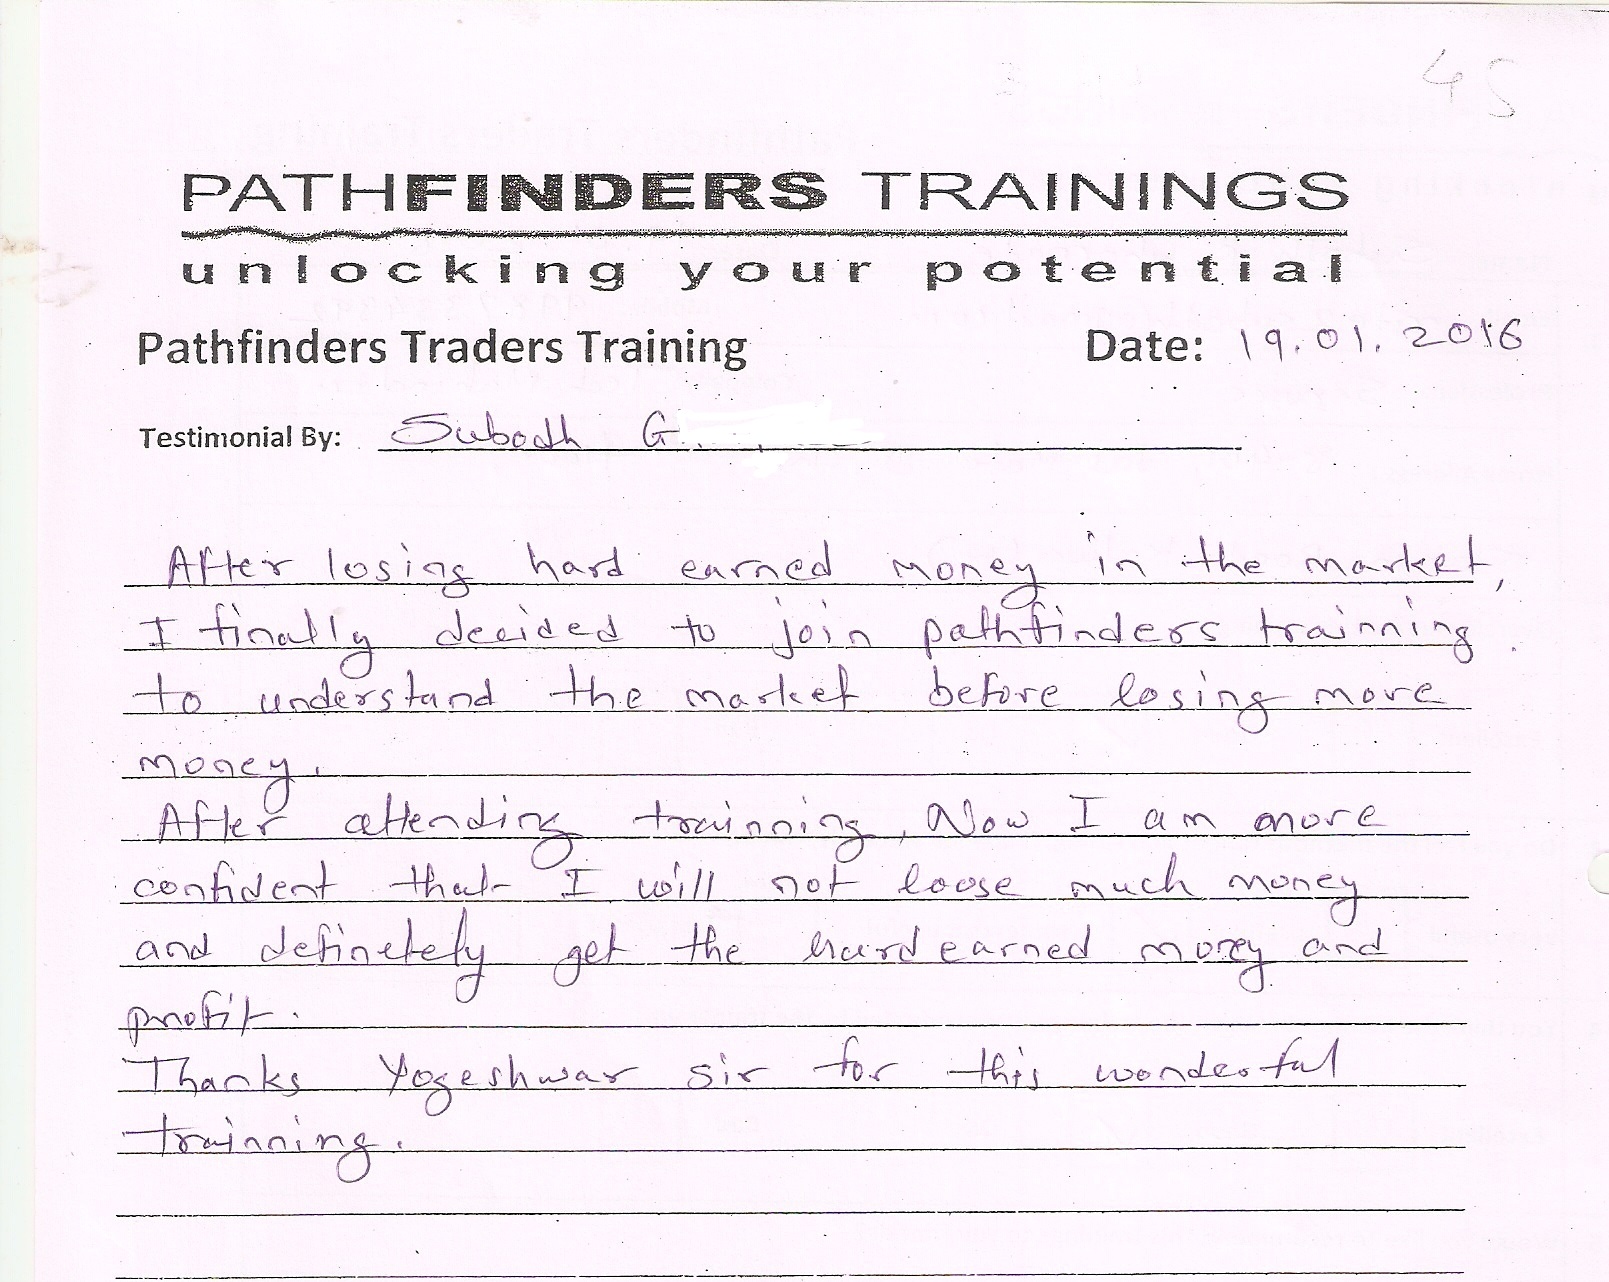 45
PATHFINDERS TRAININGS
unlocking your potential
Pathfinders Traders Training Date: 19.01.2016
Testimonial By: Subodh G.
After losing hard earned money in the market,
I finally decided to join pathfinders trainning
to understand the market before losing more
money.
After attending trainning, Now I am more
confident that I will not loose much money
and definetely get the hard earned money and
profit.
Thanks Yogeshwar sir for this wonderful
trainning.